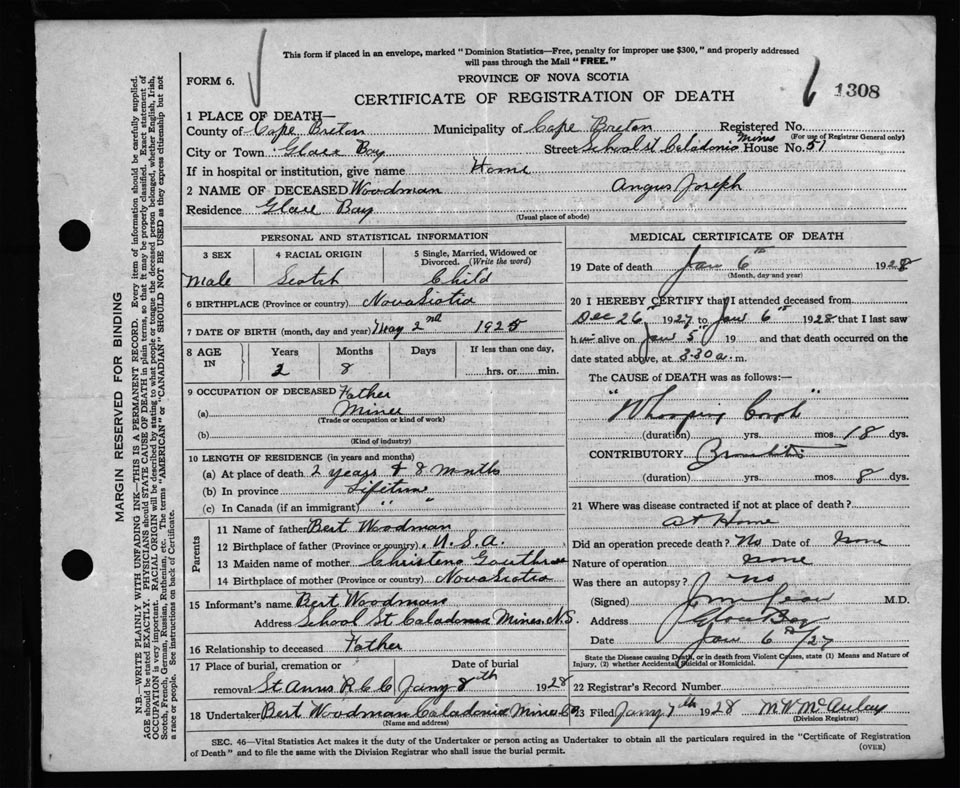 This form if placed in an envelope, marked "Dominion Statistics—Free, penalty for improper use $300," and properly addressed
will pass through the Mail "FREE."
FORM 6.
PROVINCE OF NOVA SCOTIA
1308
CERTIFICATE OF REGISTRATION OF DEATH
1 PLACE OF DEATH—
County of Cape Breton Municipality of Cape Breton Registered No.
(For use of Registrar General only)
City or Town Glace Bay Street School st Caladonia Mines House No. 51
If in hospital or institution, give name Home
2 NAME OF DECEASED Woodman Angus Joseph
Residence Glace Bay
(Usual place of abode)
PERSONAL AND STATISTICAL INFORMATION
3 SEX 4 RACIAL ORIGIN 5 Single, Married, Widowed or Divorced. (Write the word)
Male Scotch Child
6 BIRTHPLACE (Province or country) Nova Scotia
7 DATE OF BIRTH (month, day and year) May 2nd 1925
8 AGE IN Years Months Days If less than one day,
2 8 hrs. or min.
9 OCCUPATION OF DECEASED Father
(a) Miner
(Trade or occupation or kind of work)
(b)
(Kind of industry)
10 LENGTH OF RESIDENCE (in years and months)
(a) At place of death 2 years & 8 months
(b) In province Lifetime
(c) In Canada (if an immigrant) " "
Parents
11 Name of father Bert Woodman
12 Birthplace of father (Province or country) U.S.A.
13 Maiden name of mother Christena
14 Birthplace of mother (Province or country) Nova Scotia
15 Informant's name Bert Woodman
Address School St Caladonia Mines N.S.
16 Relationship to deceased Father
17 Place of burial, cremation or removal Date of burial
St Anns R C C Jany 8th 1928
18 Undertaker Bert Woodman Caladonia Mines C B
(Name and address)
MEDICAL CERTIFICATE OF DEATH
19 Date of death Jan 6th 1928
(Month, day and year)
20 I HEREBY CERTIFY that I attended deceased from
Dec 26th 1927 to Jan 6th 1928 that I last saw
him alive on Jan 5th 19 and that death occurred on the
date stated above, at 3.30 a. m.
The CAUSE of DEATH was as follows:—
"Whooping Cough"
(duration) yrs. mos. 18 dys.
CONTRIBUTORY Bronchitis
(duration) yrs. mos. 8 dys.
21 Where was disease contracted if not at place of death?
at Home
Did an operation precede death? No Date of None
Nature of operation None
Was there an autopsy? no
(Signed) M.D.
Address Glace Bay
Date Jan 6th/27
State the Disease causing Death, or in death from Violent Causes, state (1) Means and Nature of
Injury, (2) whether Accidental, Suicidal or Homicidal.
22 Registrar's Record Number
23 Filed Jany 7th 1928 M V McAulay
(Division Registrar)
SEC. 46—Vital Statistics Act makes it the duty of the Undertaker or person acting as Undertaker to obtain all the particulars required in the "Certificate of Registration
of Death" and to file the same with the Division Registrar who shall issue the burial permit.
(OVER)
MARGIN RESERVED FOR BINDING
N.B.—WRITE PLAINLY WITH UNFADING INK—THIS IS A PERMANENT RECORD. Every item of information should be carefully supplied.
AGE should be stated EXACTLY. PHYSICIANS should STATE CAUSE OF DEATH in plain terms, so that it may be properly classified. Exact statement of
OCCUPATION is very important. RACIAL ORIGIN will be described by stating to what people or tongue the deceased person belonged, whether English, Irish,
Scotch, French, German, Russian, Ruthenian, etc. The terms "AMERICAN" or "CANADIAN" SHOULD NOT BE USED as they express citizenship but not
a race or people. See instructions on back of Certificate.